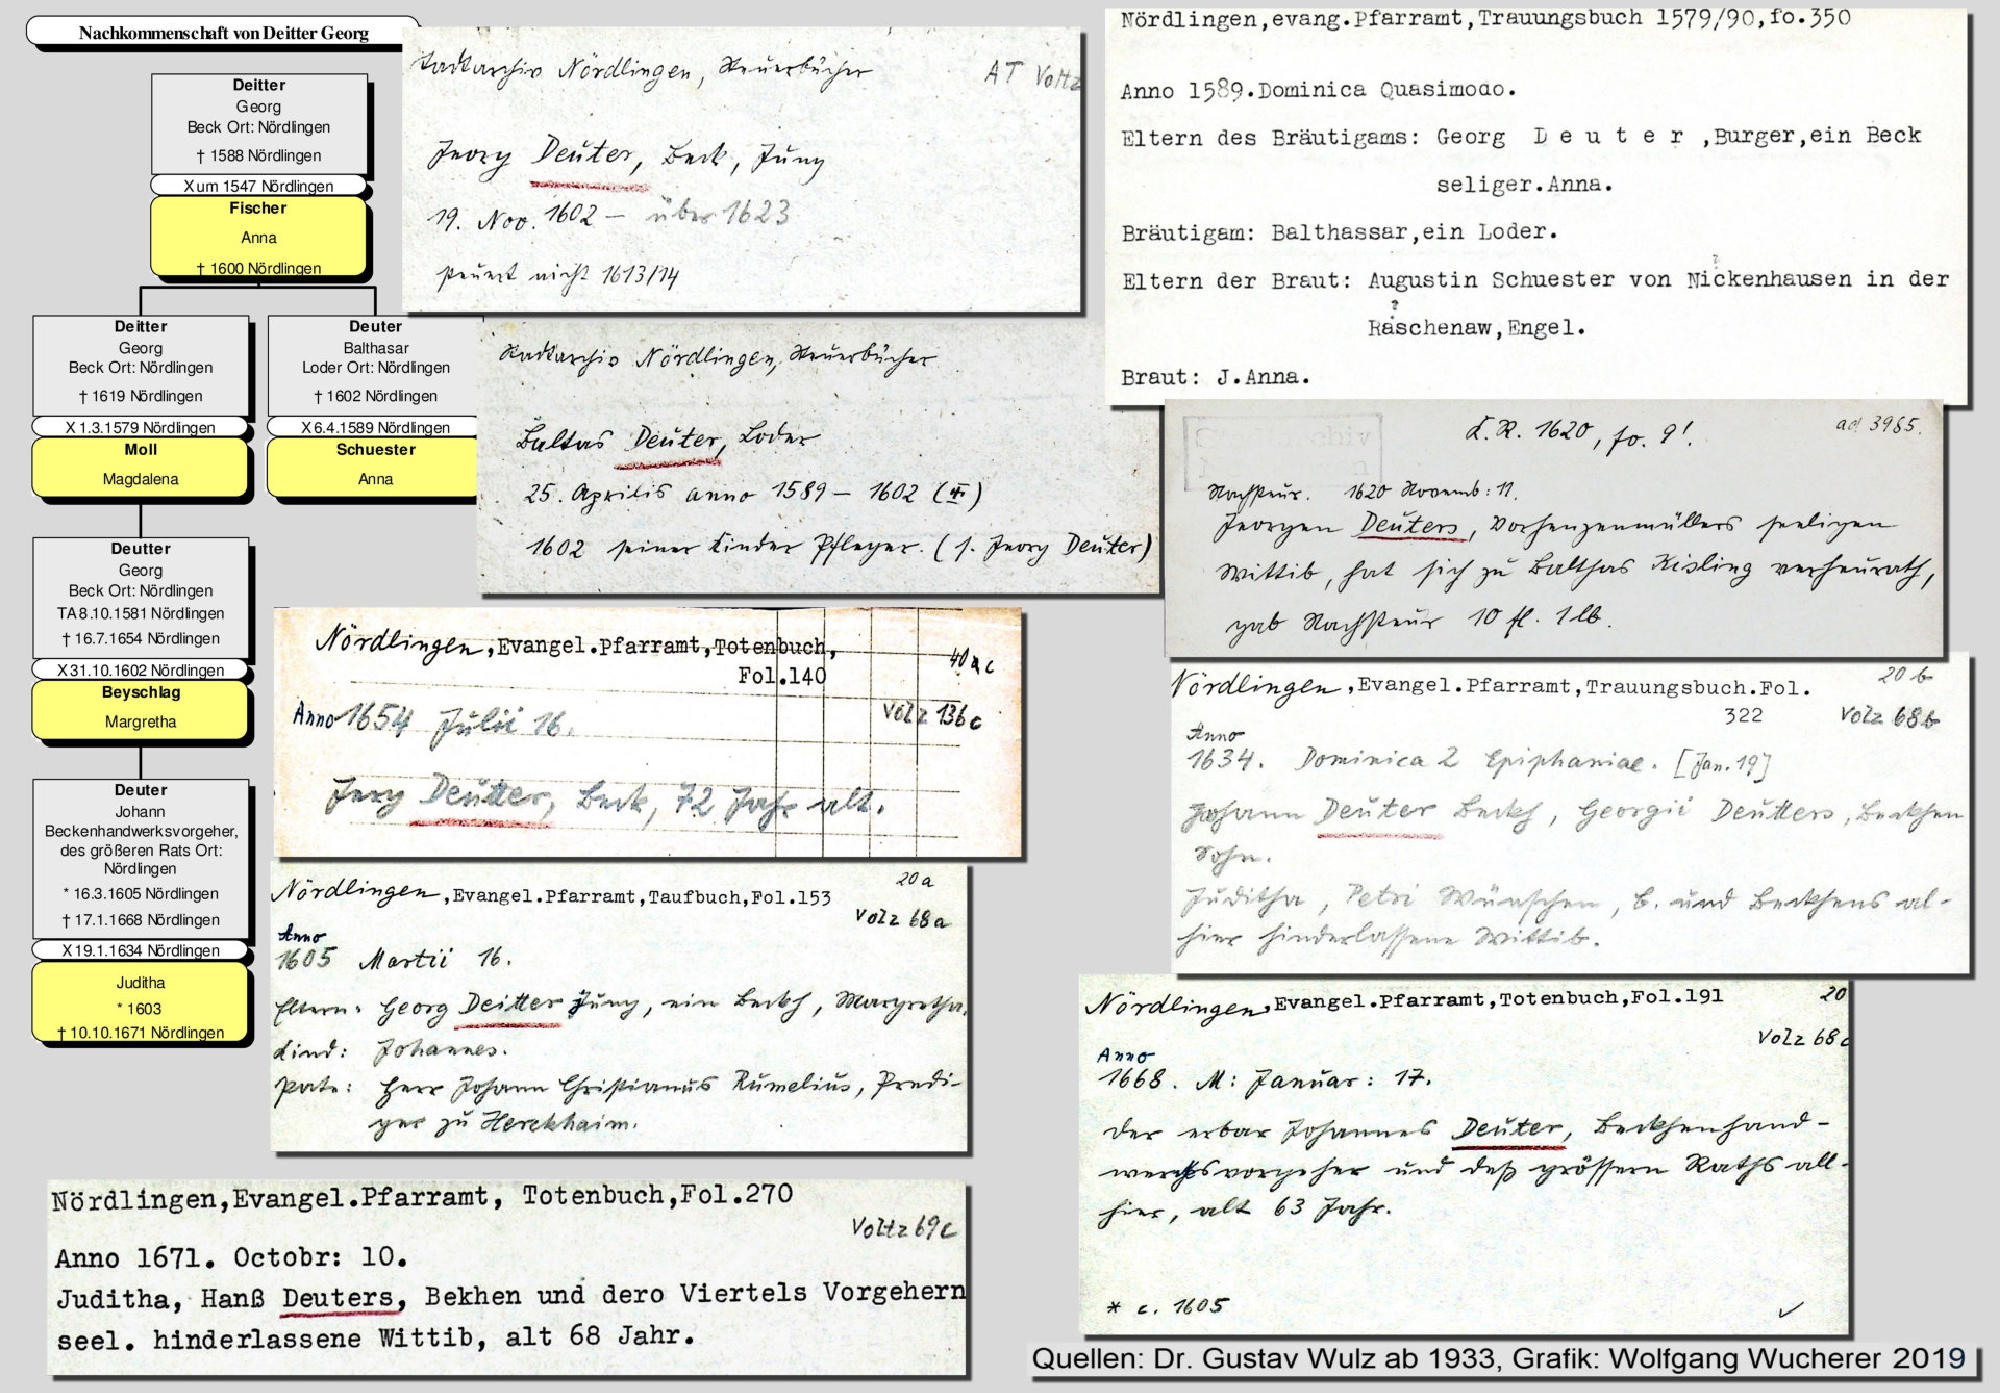 Nachkommenschaft von Deitter Georg
Deitter
Georg
Beck Ort: Nördlingen
† 1588 Nördlingen
X um 1547 Nördlingen
Fischer
Anna
† 1600 Nördlingen
Deitter
Georg
Beck Ort: Nördlingen
† 1619 Nördlingen
X 1.3.1579 Nördlingen
Moll
Magdalena
Deuter
Balthasar
Loder Ort: Nördlingen
† 1602 Nördlingen
X 6.4.1589 Nördlingen
Schuester
Anna
Deutter
Georg
Beck Ort: Nördlingen
TA 8.10.1581 Nördlingen
† 16.7.1654 Nördlingen
X 31.10.1602 Nördlingen
Beyschlag
Margretha
Deuter
Johann
Beckenhandwerksvorgeher,
des größeren Rats Ort:
Nördlingen
* 16.3.1605 Nördlingen
† 17.1.1668 Nördlingen
X 19.1.1634 Nördlingen
Juditha
* 1603
† 10.10.1671 Nördlingen
Stadtarchiv Nördlingen, Steuerbücher
AT Voltz
Georg Deuter, Beck, Jung
19. Nov. 1602 – über 1623
steuert nicht 1613/14
Stadtarchiv Nördlingen, Steuerbücher
Baltas Deuter, Loder
25. Aprilis anno 1589 – 1602 (✝)
1602 seiner Kinder Pfleger. (s. Georg Deuter)
Nördlingen, evang.Pfarramt, Trauungsbuch 1579/90, fo.350
Anno 1589. Dominica Quasimodo.
Eltern des Bräutigams: Georg D e u t e r , Burger, ein Beck
seliger. Anna.
Bräutigam: Balthassar, ein Loder.
Eltern der Braut: Augustin Schuester von Nickenhausen in der
?
?
Raschenaw, Engel.
Braut: J. Anna.
K.R. 1620, fo. 9'.
ad 3985.
Nachsteur. 1620 Novemb: 11.
Georgen Deuters, Vorhenzenmüllers seeligen
Wittib, hat sich zu Balthas Kisling verheurath,
gab Nachsteur 10 fl. 1 lb.
Nördlingen, Evangel.Pfarramt, Totenbuch,
Fol.140
40 a c
Volz 136c
Anno 1654 Julii 16.
Jerg Deutter, Beck, 72 Jahr alt.
Nördlingen, Evangel.Pfarramt, Trauungsbuch.Fol.
322
20 b
Volz 68b
Anno
1634. Dominica 2 Epiphaniae. [Jan. 19]
Johann Deuter Beckh, Georgii Deutters, Beckhen
Sohn.
Juditha, Petri Wünschen, B. und Beckhens al-
hier hinderlassene Wittib.
Nördlingen, Evangel.Pfarramt, Taufbuch, Fol.153
20a
Volz 68a
Anno
1605 Martii 16.
Eltern: Georg Deitter Jung, ein Beckh, Margretha.
Kind: Johannes.
Pate: Herr Johann Christianus Rümelius, Predi-
ger zu Herckhaim.
Nördlingen, Evangel.Pfarramt, Totenbuch, Fol.191
20
Volz 68c
Anno
1668. M: Januar: 17.
Der erbar Johannes Deuter, Beckhenhand-
werckhsvorgeher und deß grössern Raths all-
hier, alt 63 Jahr.
* c. 1605
Nördlingen, Evangel.Pfarramt, Totenbuch, Fol.270
Voltz 69c
Anno 1671. Octobr: 10.
Juditha, Hanß Deuters, Bekhen und dero Viertels Vorgehern
seel. hinderlassene Wittib, alt 68 Jahr.
Quellen: Dr. Gustav Wulz ab 1933, Grafik: Wolfgang Wucherer 2019